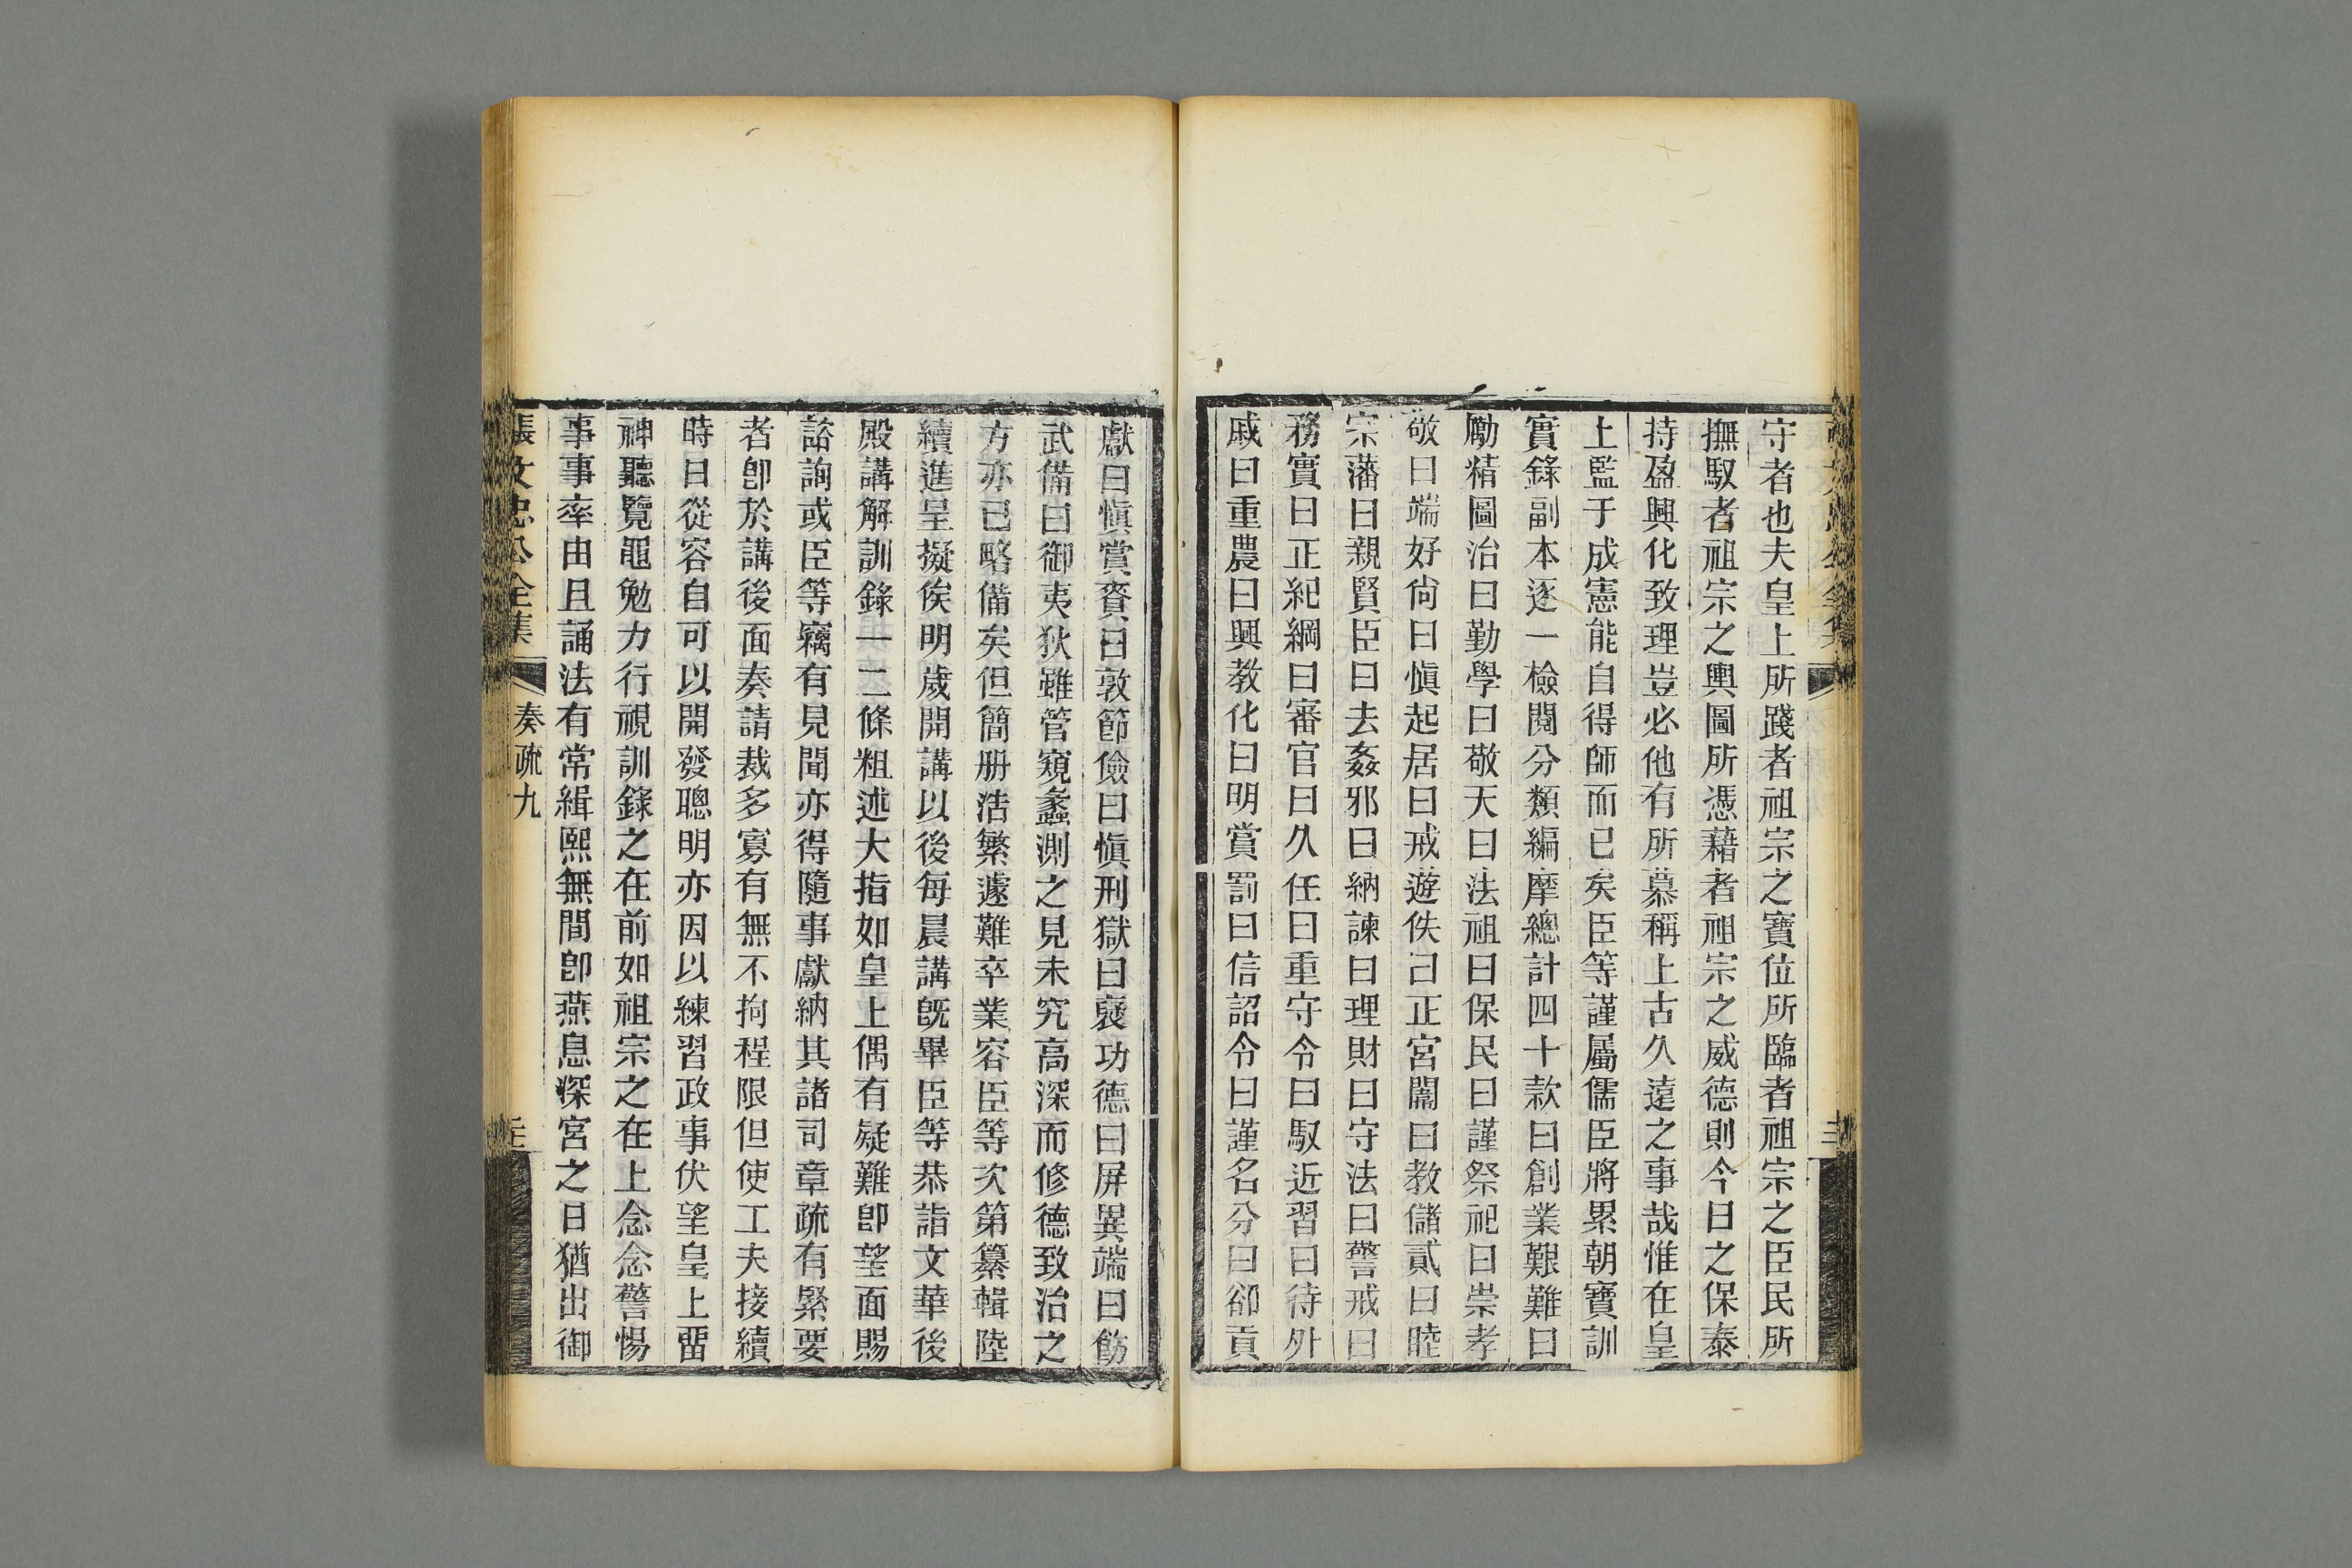 守者也夫皇上所踐者祖宗之寶位所臨者祖宗之臣民所
撫馭者祖宗之輿圖所憑藉者祖宗之威德則今日之保泰
持盈興化致理豈必他有所慕稱上古久遠之事哉惟在皇
上監于成憲能自得師而已矣臣等謹屬儒臣將累朝寶訓
實錄副本逐一檢閱分類編摩總計四十款曰創業艱難曰
勵精圖治曰勤學曰敬天曰法祖曰保民曰謹祭祀曰崇孝
敬曰端好尙曰愼起居曰戒遊佚曰正宮闈曰教儲貳曰睦
宗藩曰親賢臣曰去姦邪曰納諫曰理財曰守法曰警戒曰
務實曰正紀綱曰審官曰久任曰重守令曰馭近習曰待外
戚曰重農曰興教化曰明賞罰曰信詔令曰謹名分曰卻貢
獻曰愼賞賚曰敦節儉曰愼刑獄曰襃功德曰屏異端曰飭
武備曰御夷狄雖管窺蠡測之見未究高深而修德致治之
方亦已略備矣但簡册浩繁遽難卒業容臣等次第纂輯陸
續進呈擬俟明歲開講以後每晨講旣畢臣等恭詣文華後
殿講解訓錄一二條粗述大指如皇上偶有疑難卽望面賜
諮詢或臣等竊有見聞亦得隨事獻納其諸司章疏有緊要
者卽於講後面奏請裁多寡有無不拘程限但使工夫接續
時日從容自可以開發聰明亦因以練習政事伏望皇上畱
神聽覽黽勉力行視訓錄之在前如祖宗之在上念念警惕
事事率由且誦法有常緝熙無間卽燕息深宮之日猶出御
張文忠公全集 奏疏九